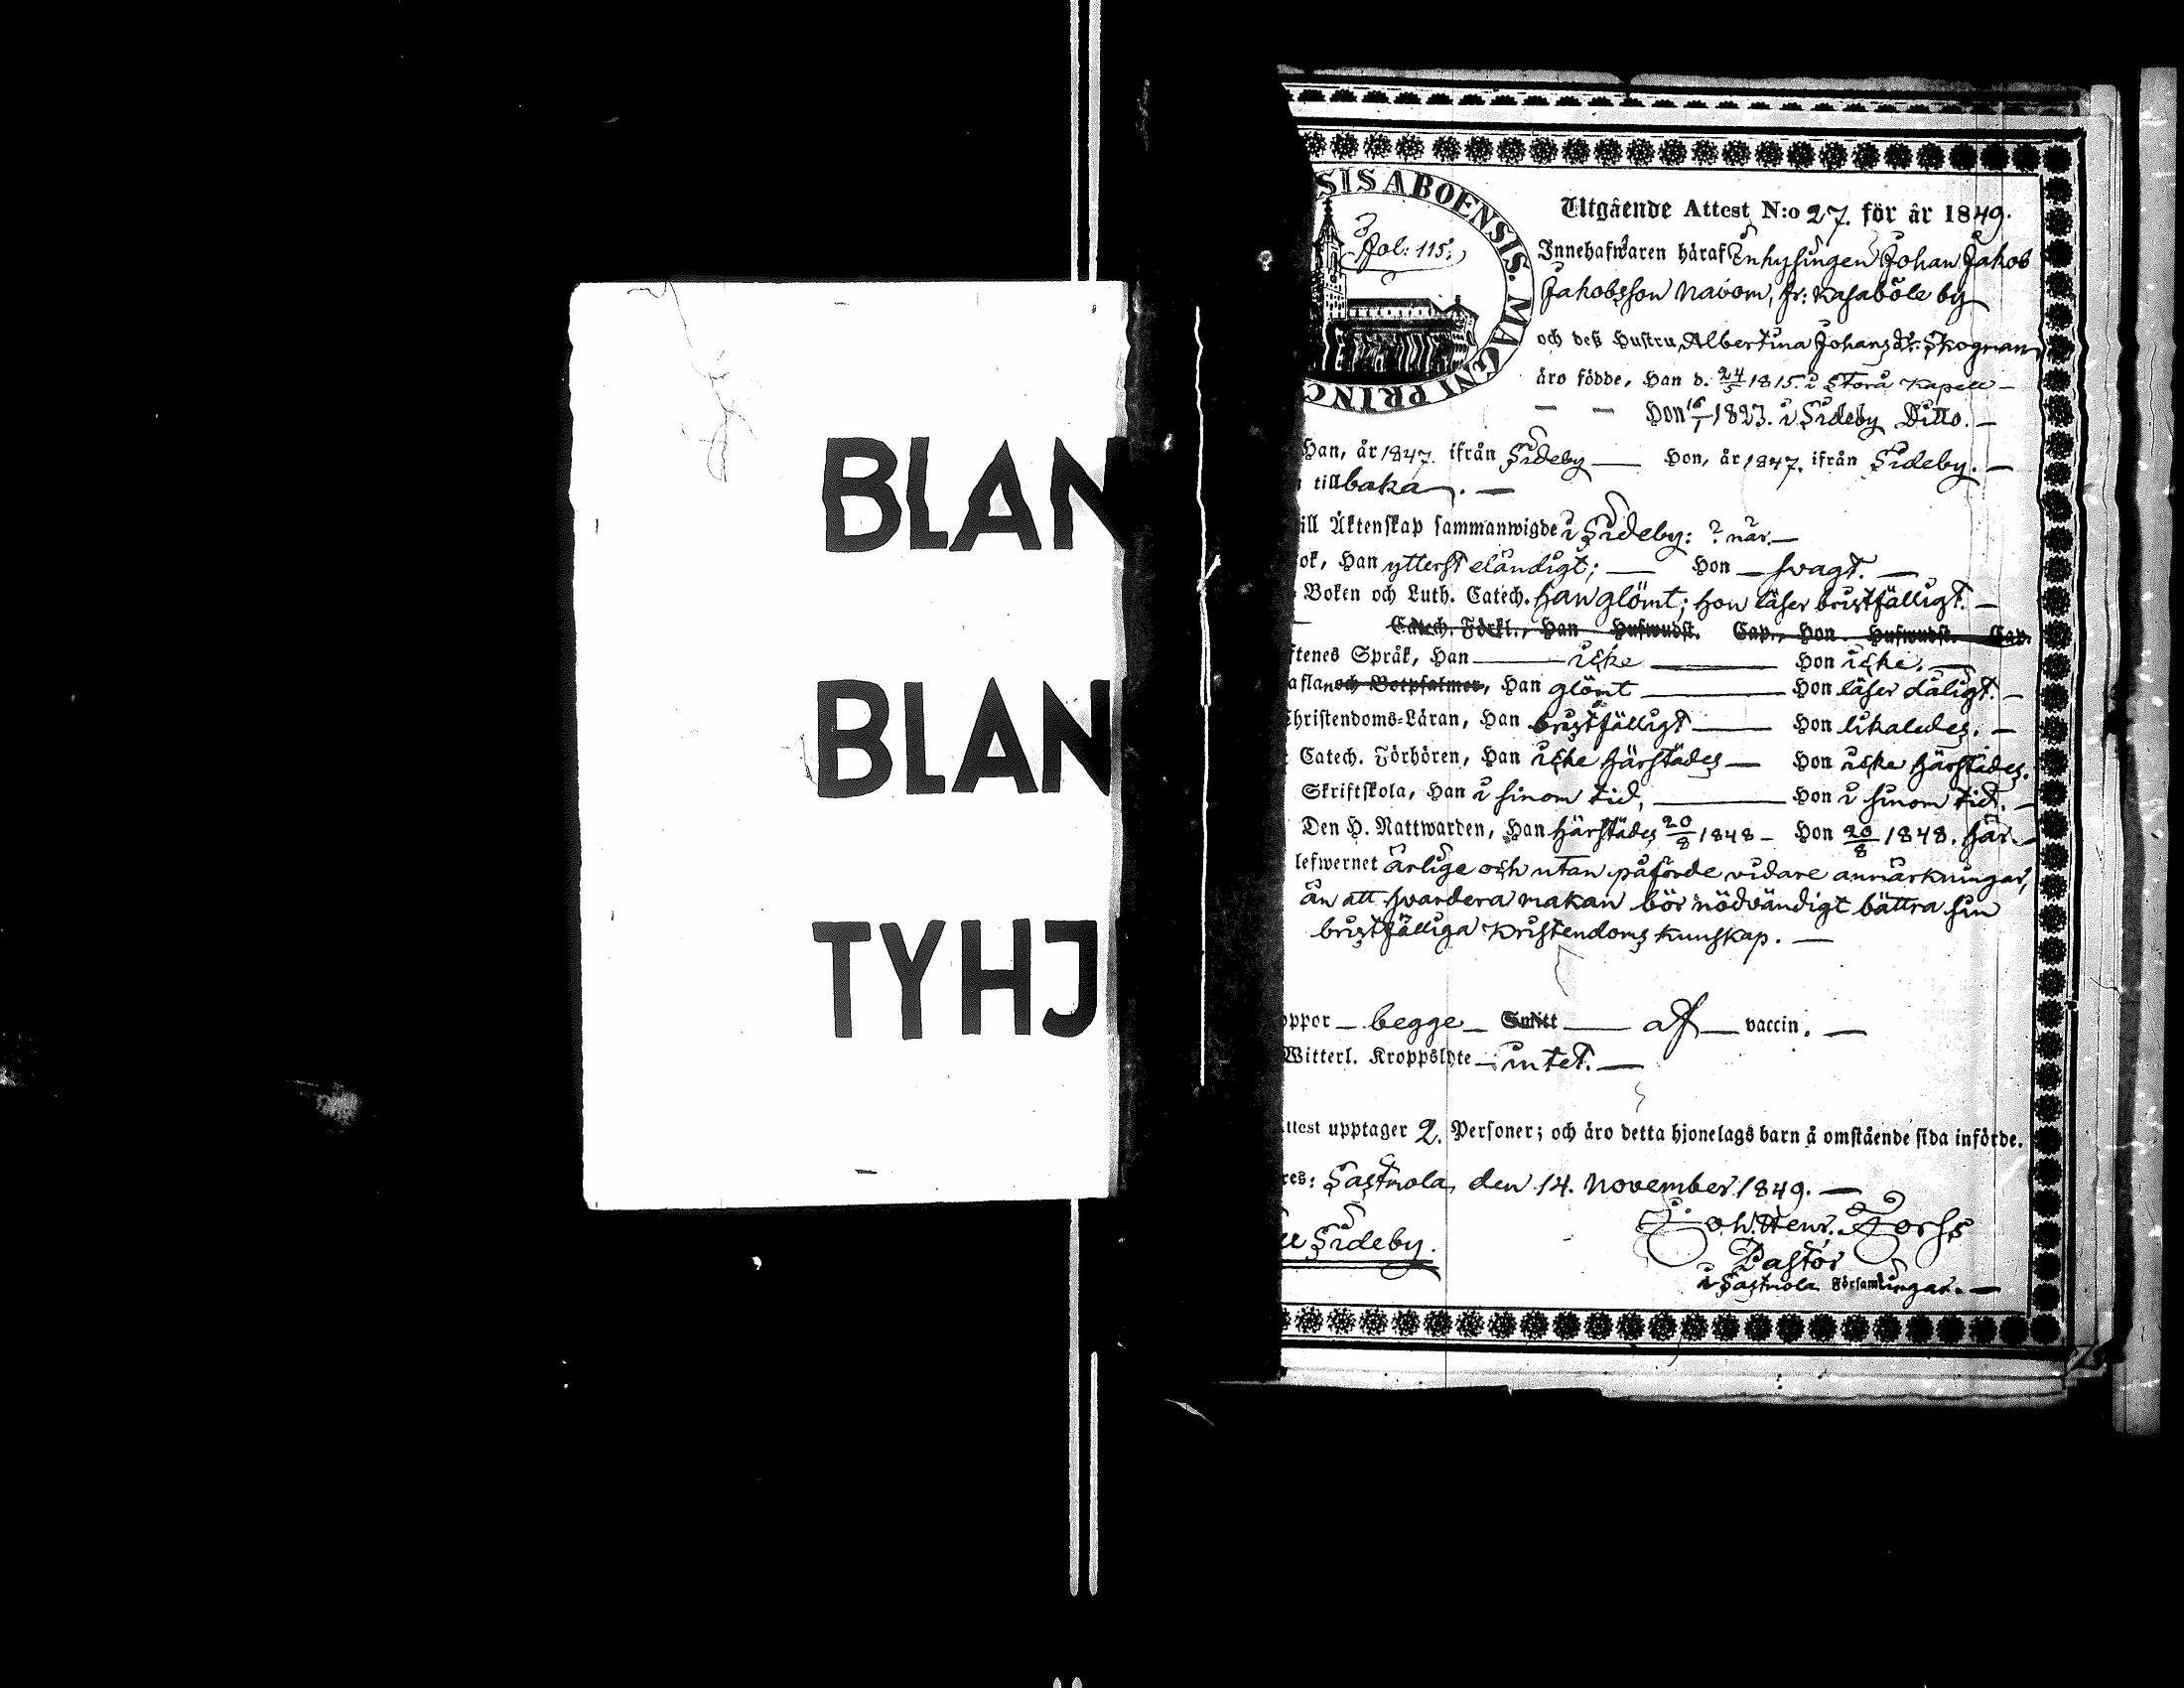 BLAN
BLAN
TYHJ
SIS ABOENSIS. MAGNI PRINC
Fol: 115.
Utgående Attest N:o 27. för år 1849.
Innehafwaren häraf Inhysingen Johan Jakob
Jakobsson Navom, fr: Kasaböle by
och deß Hustru Albertina Johans dr. Skogman
äro födde, Han d. 24/5 1815. i Storå Kapell –
– – Hon 16/1 1823. i Sideby Ditto. –
Han, år 1847. ifrån Sideby — Hon, år 1847. ifrån Sideby. –
tillbaka. –
ill Äktenskap sammanwigde i Sideby: ? när. –
ok, Han ytterst eländigt; — Hon – svagt. –
Boken och Luth. Catech. han glömt; hon läser bristfälligt. –
Catech. Förkl., Han Hufwudst. Cap., Hon Hufwudst. Cap.
ftenes Språk, Han — icke — Hon icke. –
aflan och Botpsalmer, Han glömt — Hon läser dåligt. –
Christendoms-Läran, Han bristfälligt — Hon likaledes. –
Catech. Förhören, Han icke härstädes — Hon icke härstädes.
Skriftskola, Han i sinom tid, — Hon i sinom tid. –
Den H. Nattwarden, Han härstädes 20/8 1848 – Hon 20/8 1848. här. –
lefwernet ärlige och utan påförde vidare anmärkningar,
än att hvardera makan bör nödvändigt bättra sin
bristfälliga Kristendoms kunskap. –
oppor – begge – Snitt — af — vaccin. –
Witterl. Kroppslyte – intet. –
ttest upptager 2. Personer; och äro detta hjonelags barn å omstående sida införde.
res: Sastmola, den 14. November 1849. –
Sideby.
Joh. Henr. Forss
Pastor
i Sastmola Församlingar. –